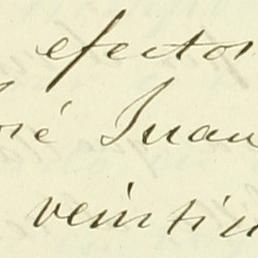 efectos
José Juan
veintiu